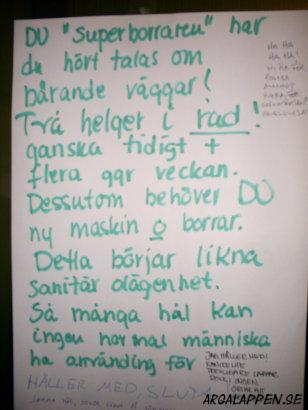 DU "Superborraren" har
du hört talas om
bärande väggar!
Två helger i rad!
ganska tidigt +
flera ggr veckan.
Dessutom behöver DU
ny maskin o borrar.
Detta börjar likna
sanitär olägenhet.
Så många hål kan
ingen normal människa
ha använding för
HA HA
HA HA!
JAG HÅLLER MED!
HÅLLER MED, SLUTA
ARGALAPPEN.SE